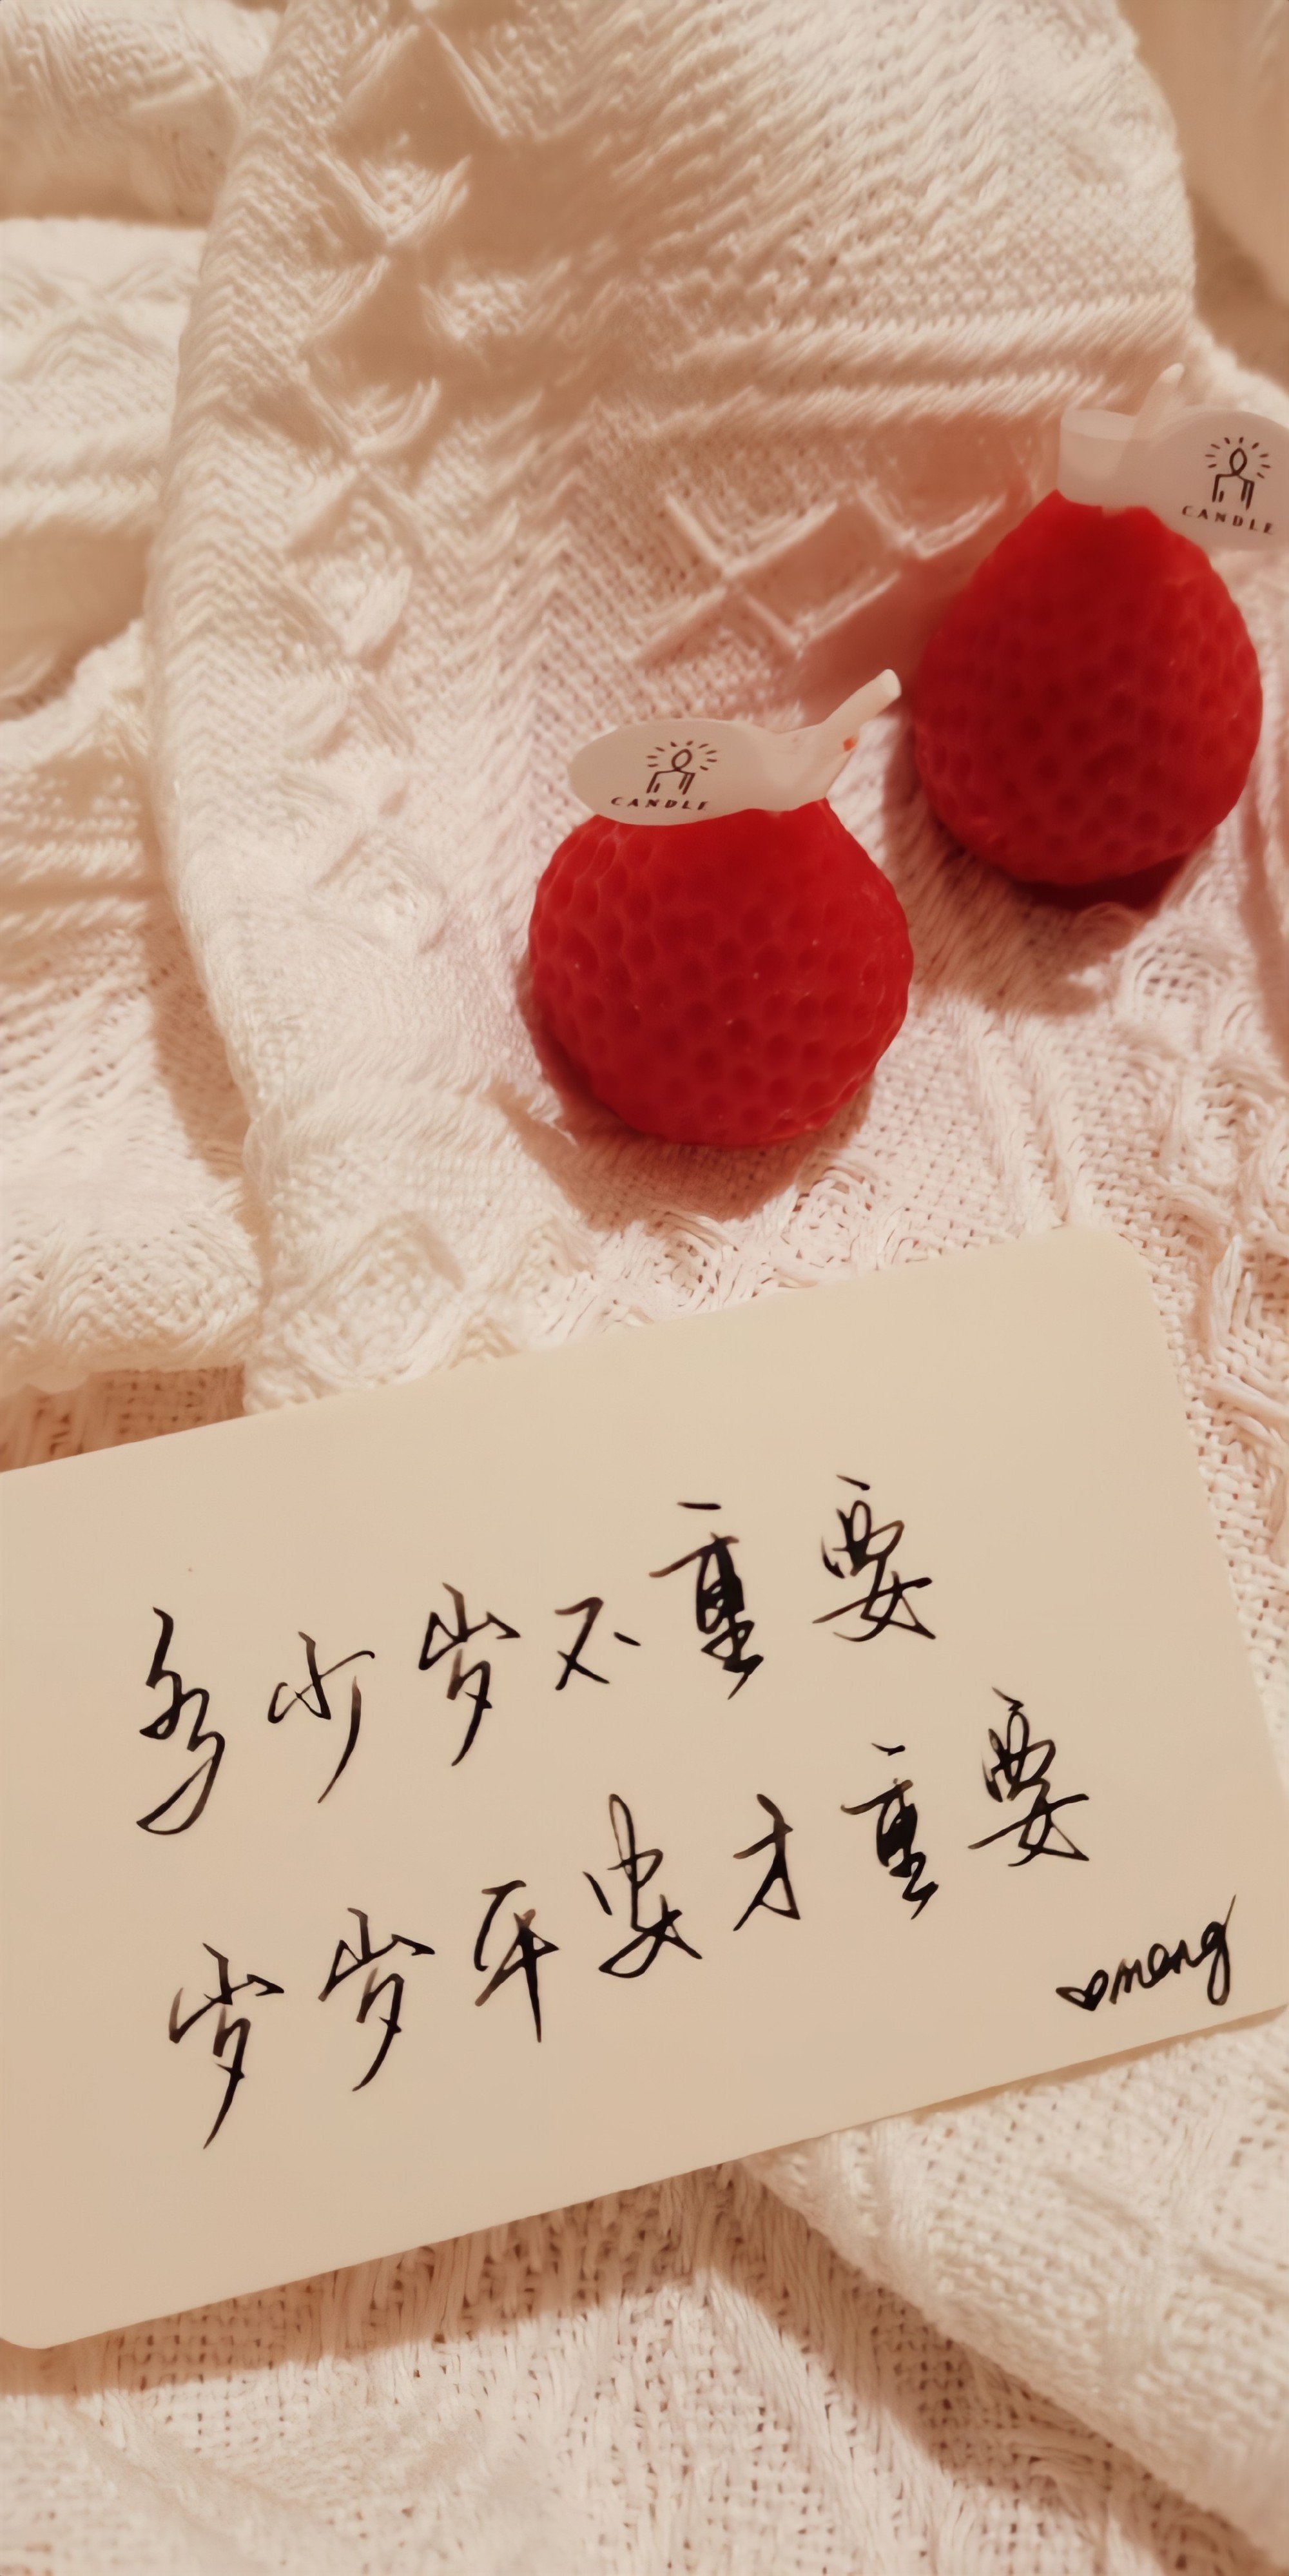 CANDLE
CANDLE
多少岁不重要
岁岁平安才重要
meng